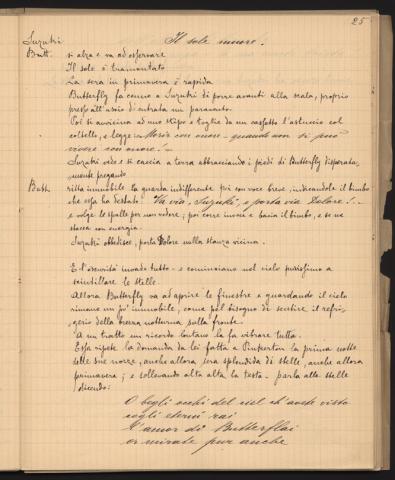 25
Suzuki Il sole muore!
Butt. si alza e va ad osservare
Il sole è tramontato
La sera in primavera è rapida
Butterfly fa cenno a Suzuki di porre avanti alla scala, proprio
presso all'uscio d'entrata un paravento.
Poi si avvicina ad uno stipo e toglie da un cassetto l'astuccio col
coltello, e legge: Morir con onor - quando non si può
vivere con onore! -
Suzuki vede e si caccia a terra abbracciando i piedi di Butterfly disperata,
mente pregando
Butt. ritta immobile la guarda indifferente poi con voce breve, indicandole il bimbo
che essa ha destato: Va via, Suzuki, e porta via Dolore! -
e volge le spalle per non vedere; poi corre innanzi e bacia il bimbo, e se ne
stacca con energia.
Suzuki obbedisce, porta Dolore nella stanza vicina.
E l'oscurità invade tutto - e cominciano nel cielo purissimo a
scintillare le stelle.
Allora Butterfly va ad aprire le finestre e guardando il cielo
rimane un po' immobile, come pel bisogno di sentire il refri,
gerio della brezza notturna sulla fronte.
A un tratto un ricordo lontano la fa vibrare tutta.
Essa ripete la domanda da lei fatta a Pinkerton la prima notte
delle sue nozze, anche allora sera splendida di stelle, anche allora
primavera; e sollevando alta alta la testa - parla alle stelle
dicendo:
O begli occhi del ciel ch'avete visto
cogli eterni rai
L'amor di Butterflai
or mirate pur anche